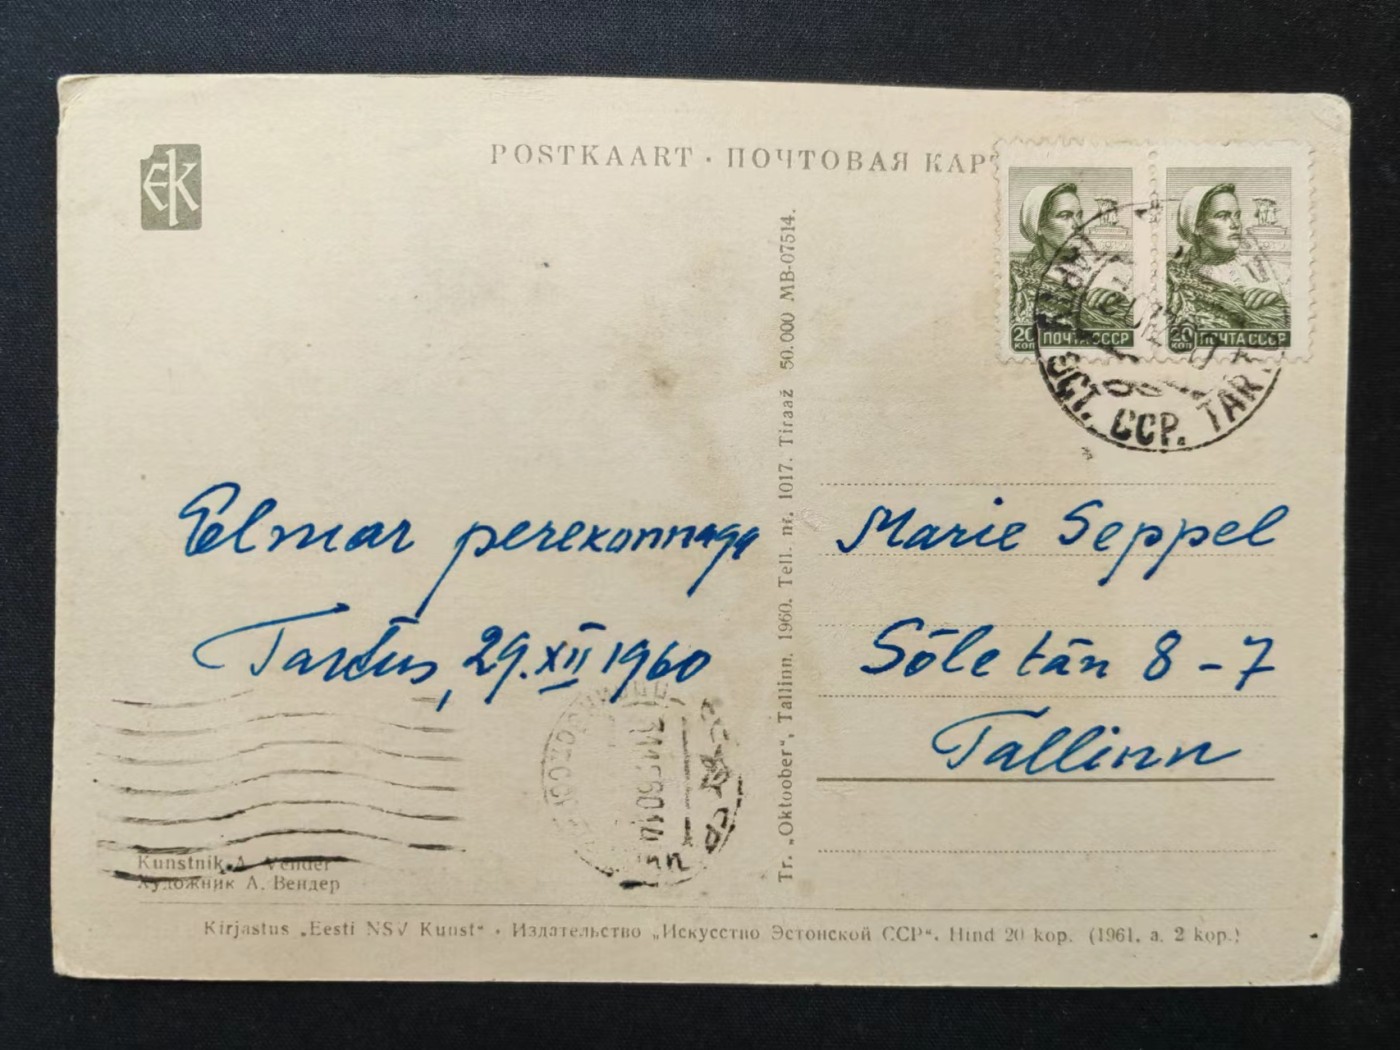 EK
POSTKAART · ПОЧТОВАЯ КАРТ
20 КОП ПОЧТА СССР
20 КОП ПОЧТА СССР
ЭСТ. ССР. TART
Elmar perekonnaga
Tartus, 29. XII 1960
Marie Seppel
Sõle tän 8-7
Tallinn
Tr. „Oktoober“, Tallinn. 1960. Tell. nr. 1017. Tiraaž 50.000 MB-07514.
Kunstnik A. Vender
Художник А. Вендер
Kirjastus „Eesti NSV Kunst“ · Издательство „Искусство Эстонской ССР“. Hind 20 kop. (1961. a. 2 kop.)